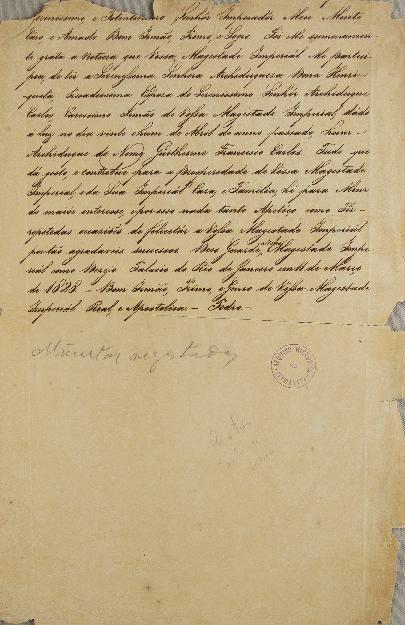 Serenissimo e Potentissimo Senhor Imperador Meu Muito
Caro e Amado Bom Irmão, Primo, e Sogro. Foi Me summamen-
te grata a Noticia que Vossa Magestade Imperial Me Partici-
pou de ter a Serenissima Senhora Archiduqueza Dona Henri-
queta Prezadissima Esposa do Serenissimo Senhor Archiduque
Carlos Carissimo Irmão de Vossa Magestade Imperial, dado
a luz no dia vinte e hum de Abril do anno passado, hum
Archiduque de Nome Guilherme Francisco Carlos. Tudo que
dá gosto, e contribue para a prosperidade de Vossa Magestade
Imperial e da Sua Imperial Caza, e Familia, he para Mim
do maior interesse, e por isso nada tanto Appeteço como Ter
repetidas occasiões de felicitar a Vossa Magestade Imperial
por tão agradaveis successos. Deos Guarde a Vossa Magestade Impe-
rial como Dezejo. Palacio do Rio de Janeiro em 11 de Março
de 1828. - Bom Irmão, Primo, e Genro de Vossa Magestade
Imperial Real, e Apostolica - Pedro -
Minutas registradas